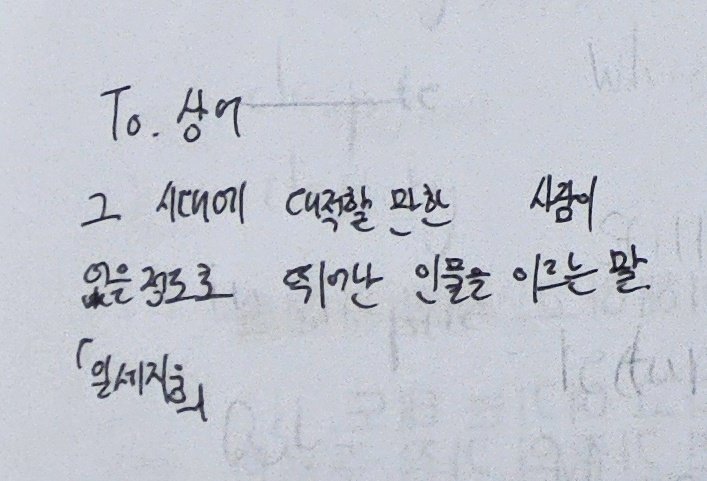 To. 상어
그 시대에 대적할 만한 사람이
없을 정도로 뛰어난 인물을 이르는 말
「일세지웅」